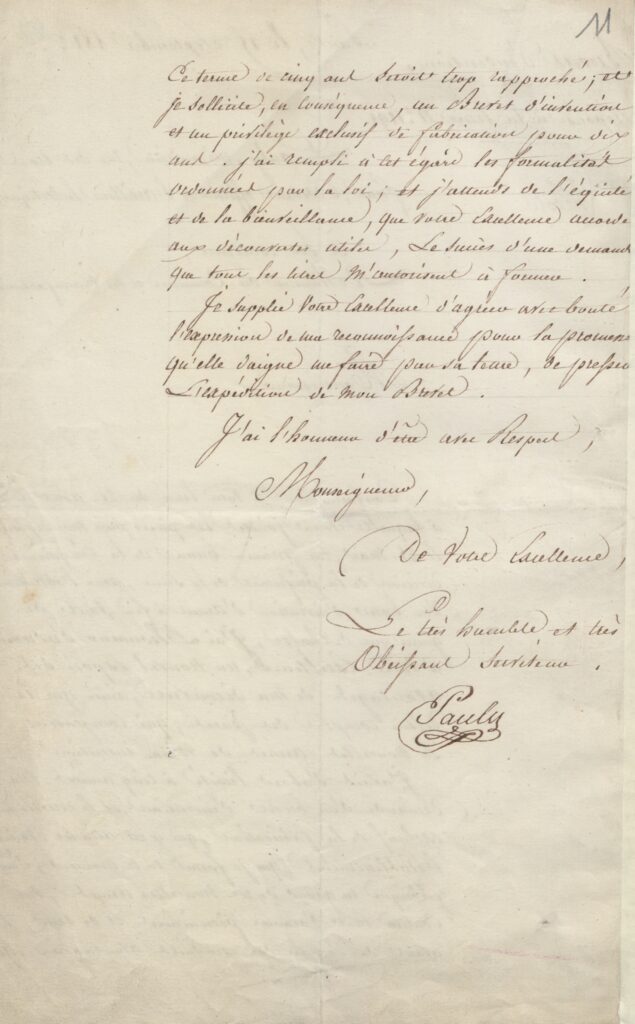 11
Ce terme de cinq ans seroit trop rapproché; et
je sollicite, en conséquence, un Brevet d'invention
et un privilège exclusif de fabrication pour dix
ans. j'ai rempli à cet égard les formalités
ordonnées par la loi; et j'attends de l'équité
et de la bienveillance, que votre Excellence accorde
aux découvertes utiles, Le succès d'une demande
que tous les titres m'autorisent à former.
Je supplie Votre Excellence d'agréer avec bonté
l'expression de ma reconnoissance pour la promesse
qu'elle daigne me faire par sa lettre, de presser
L'expédition de mon Brevet.
J'ai l'honneur d'être avec Respect,
Monseigneur,
De Votre Excellence,
Le très humble et très
Obéissant Serviteur.
Pauly